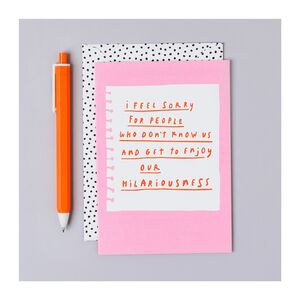 i FEEL SORRY
FOR PEOPLE
WHO DON'T KNOW US
AND GET TO ENJOY
OUR
HiLARiOUSNESS